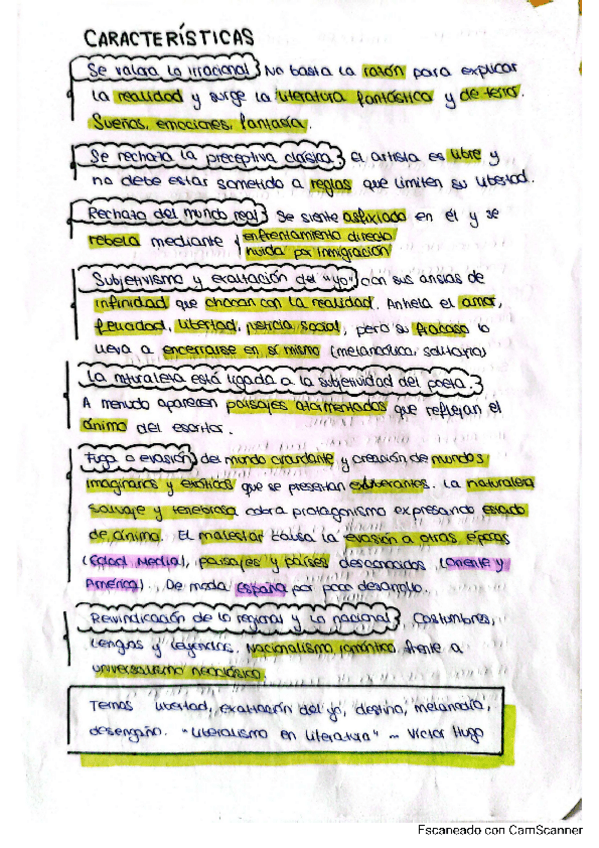 CARACTERÍSTICAS
Se valora lo irracional No basta la razón para explicar
la realidad y surge la literatura fantástica y de terror.
Sueños, emociones, fantasía.
Se rechaza la preceptiva clásica. El artista es libre y
no debe estar sometido a reglas que limiten su libertad.
Rechazo del mundo real Se siente asfixiado en él y se
rebela mediante { enfrentamiento directo
huida por inmigración
Subjetivismo y exaltación del "yo" con sus ansias de
infinidad que chocan con la realidad. Anhela el amor,
felicidad, libertad, justicia social, pero su fracaso lo
lleva a encerrarse en sí mismo (melancólico, solitario)
La naturaleza está ligada a la subjetividad del poeta.
A menudo aparecen paisajes que reflejan el
ánimo del escritor.
Fuga o evasión del mundo circundante y creación de mundos
imaginarios y exóticos que se presentan exuberantes. La naturaleza
salvaje y tenebrosa cobra protagonismo expresando estado
de ánimo. El malestar causa la evasión a otras épocas
(Edad Media), paisajes y países desconocidos (Oriente y
América). De moda España por poco desarrollo.
Reivindicación de lo regional y lo nacional, costumbres,
lenguas y leyendas. Nacionalismo romántico frente a
universalismo neoclásico.
Temas libertad, exaltación del yo, destino, melancolía,
desengaño. "Liberalismo en literatura" ~ Victor Hugo
Escaneado con CamScanner